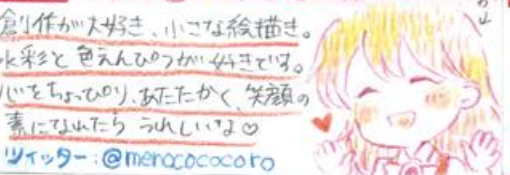 創作が大好き、小さな絵描き。
水彩と色えんぴつが好きです。
心をちょっぴり、あたたかく、笑顔の
素になれたら うれしいな♡
ツイッター:@menococcocoro